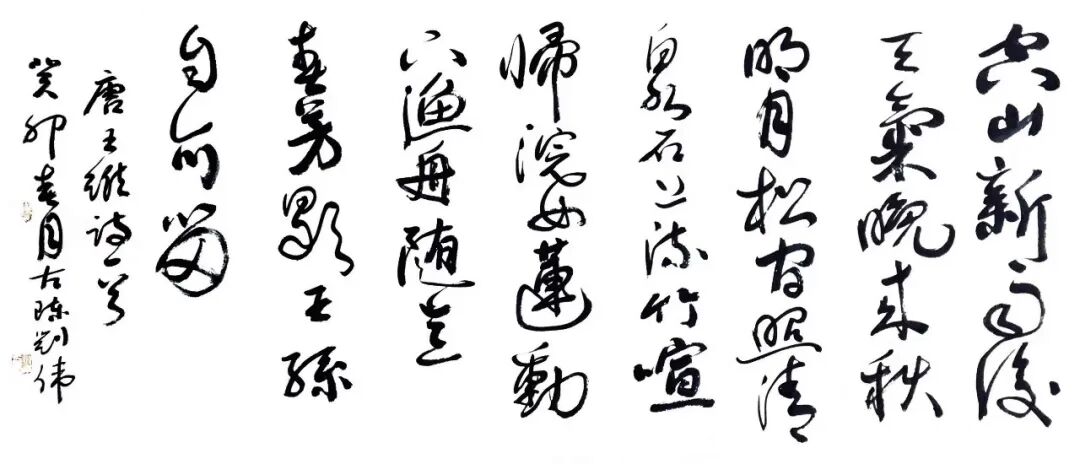 空山新雨後
天氣晚来秋
明月松间照清
泉石上流竹喧
歸浣女蓮動
下漁舟随意
春芳歇王孫
自可留
唐王維诗一首
癸卯春月古陈刘伟